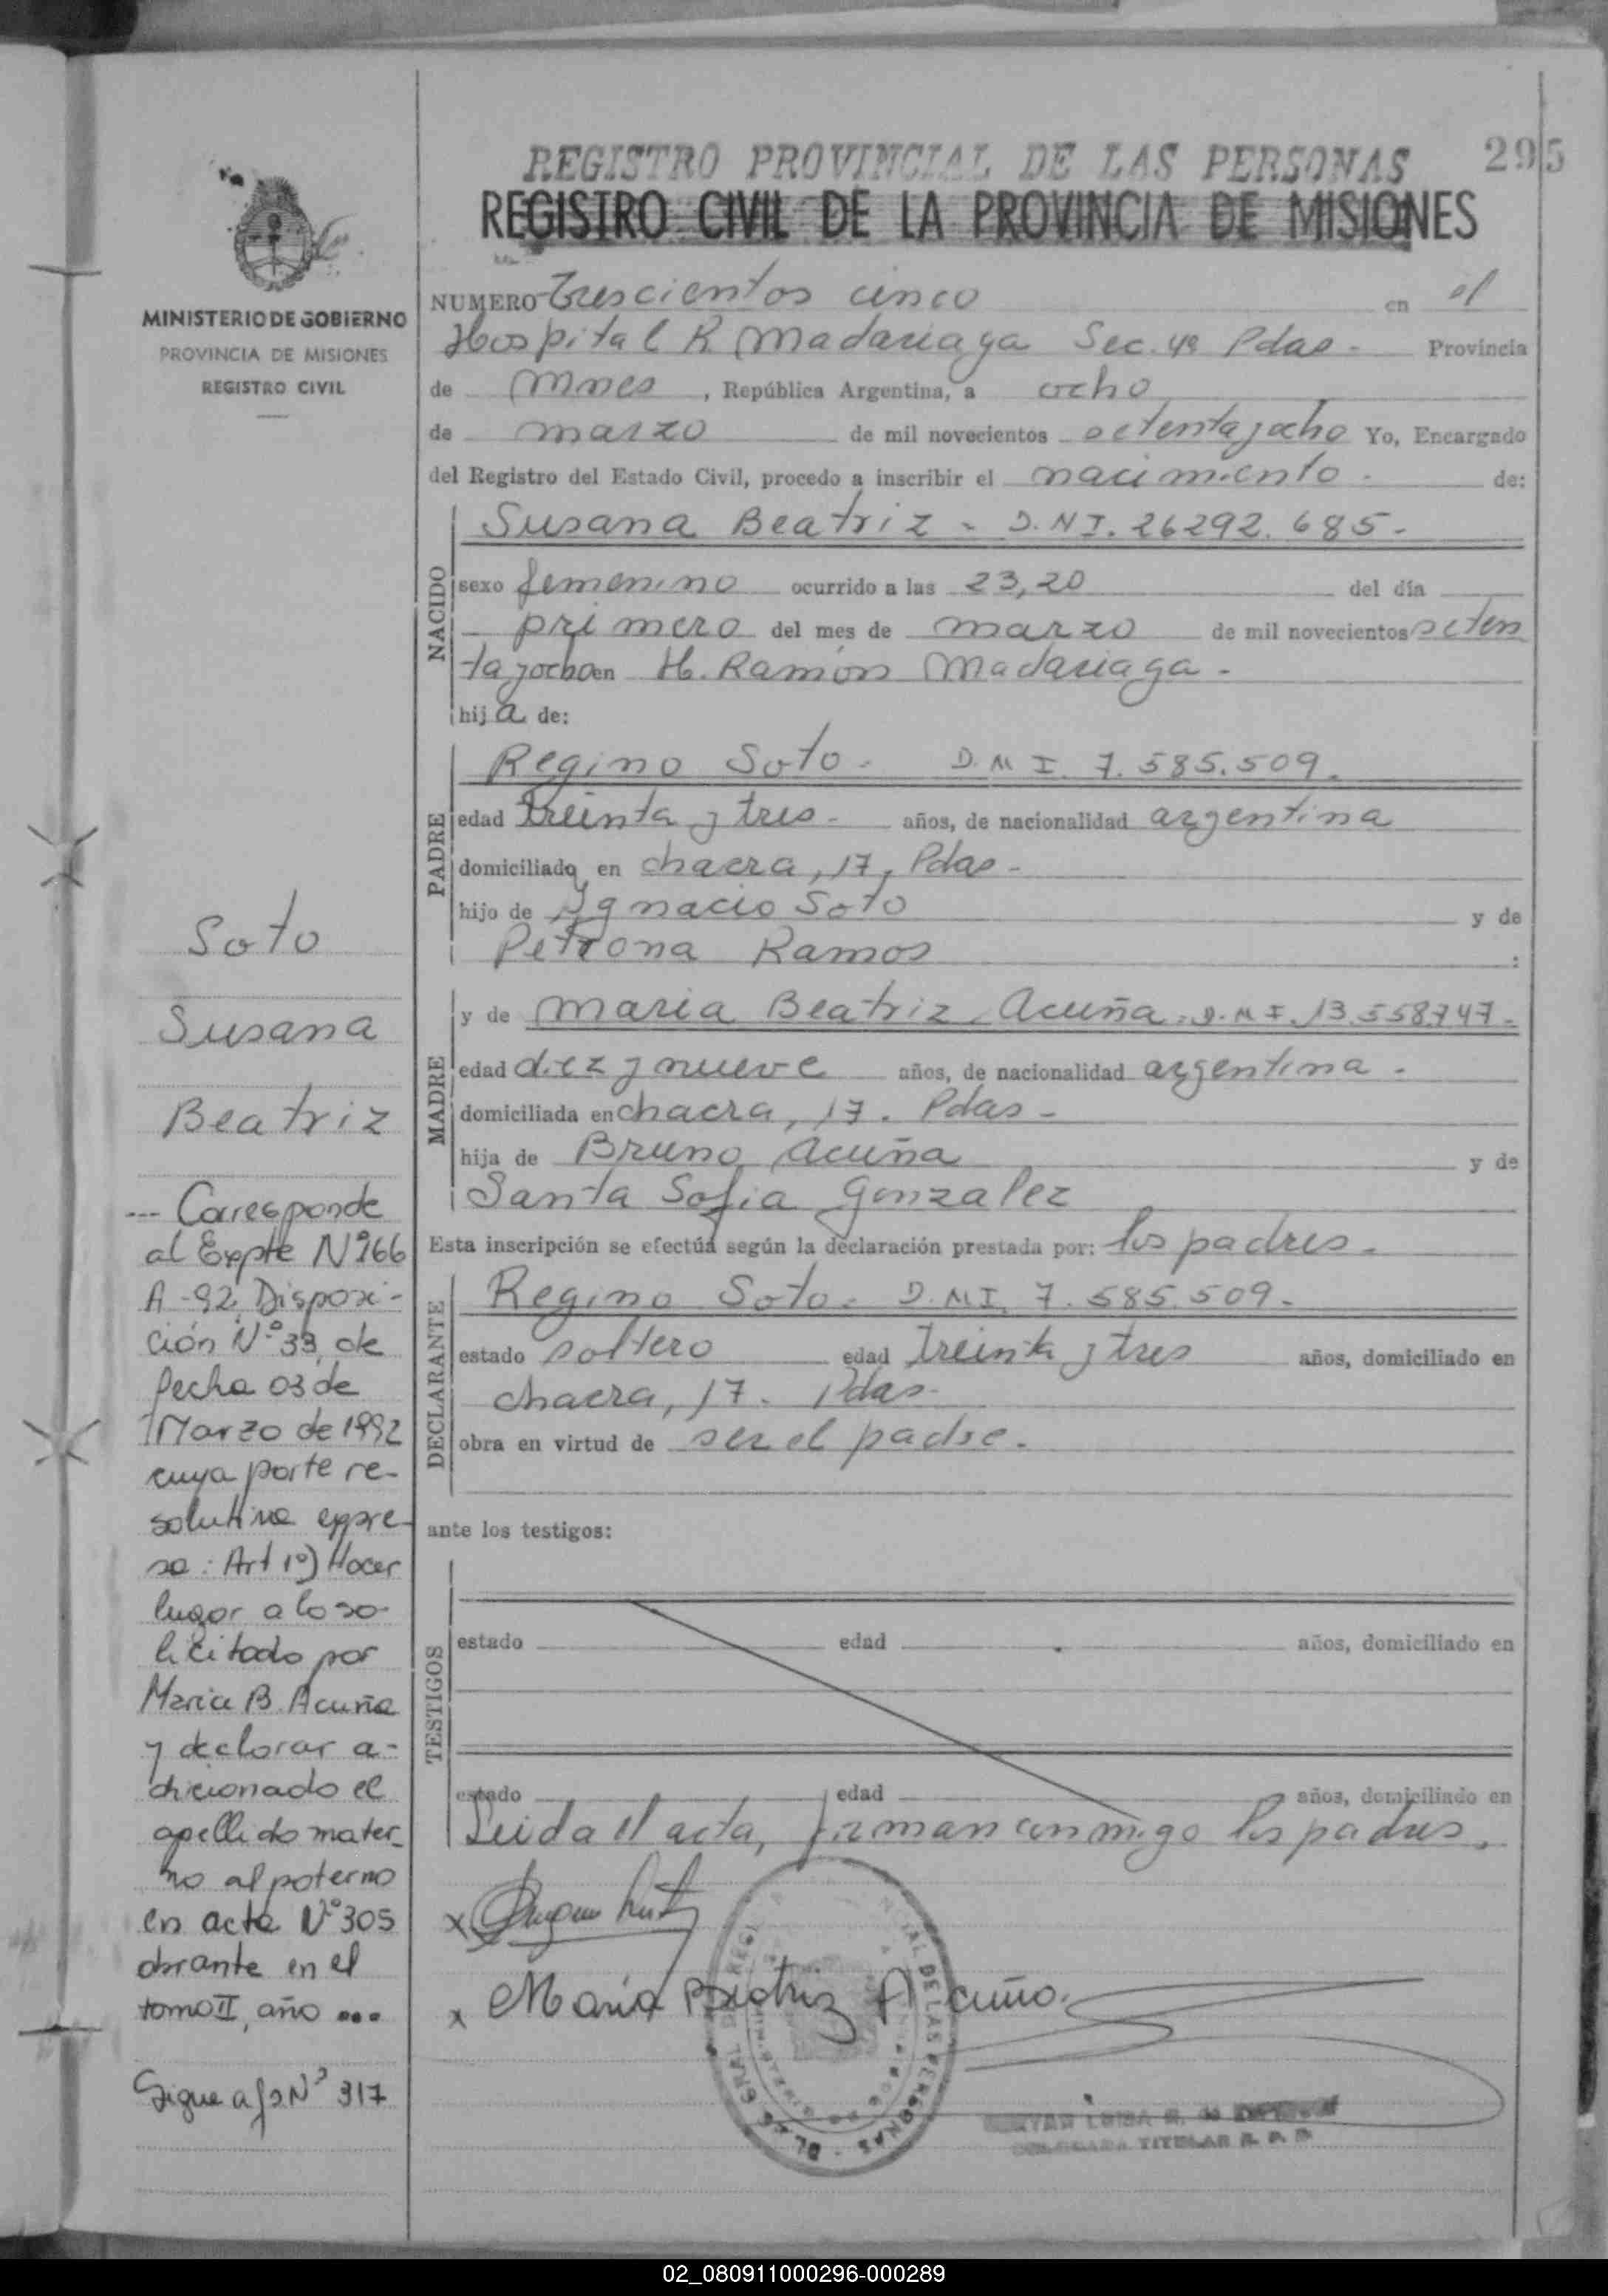 295
REGISTRO PROVINCIAL DE LAS PERSONAS
REGISTRO CIVIL DE LA PROVINCIA DE MISIONES
MINISTERIO DE GOBIERNO
PROVINCIA DE MISIONES
REGISTRO CIVIL
NUMERO Trescientos cinco en el
Hospital R. Madariaga Sec. 4ª Pdas - Provincia
de Mnes, República Argentina, a ocho
de marzo de mil novecientos setenta y ocho Yo, Encargado
del Registro del Estado Civil, procedo a inscribir el nacimiento. de:
NACIDO
Susana Beatriz - D.N.I. 26292.685.-
sexo femenino ocurrido a las 23,20 del día
primero del mes de marzo de mil novecientos seten
ta y ocho en H. Ramón Madariaga.
hija de:
PADRE
Regino Soto. D.M.I. 7.585.509.
edad treinta y tres- años, de nacionalidad argentina
domiciliado en chacra, 17, Pdas-
hijo de Ygnacio Soto y de
Petrona Ramos :
MADRE
y de Maria Beatriz Acuña. D.M.I. 13.558.747-
edad diez y nueve años, de nacionalidad argentina.
domiciliada en chacra, 17. Pdas-
hija de Bruno Acuña y de
Santa Sofia Gonzalez
Esta inscripción se efectúa según la declaración prestada por: los padres.
DECLARANTE
Regino Soto. D.M.I. 7.585.509-
estado soltero edad treinta y tres años, domiciliado en
chacra, 17. Pdas-
obra en virtud de ser el padre.
ante los testigos:
TESTIGOS
estado edad años, domiciliado en
estado edad años, domiciliado en
Leida el acta, firman conmigo los padres.
x
x Maria Beatriz Acuña.
TITULAR R. P. P.
Soto
Susana
Beatriz
--- Corresponde
al Expte Nº 166
A-92, Disposi-
ción Nº 33, de
fecha 03 de
Marzo de 1992
cuya parte re-
solutiva expre-
sa: Art 1º) Hacer
lugar a lo so-
licitado por
Maria B. Acuña
y declarar a-
dicionado el
apellido mater-
no al paterno
en acta Nº 305
obrante en el
tomo II, año ...
Sigue a fs Nº 317
02_080911000296-000289